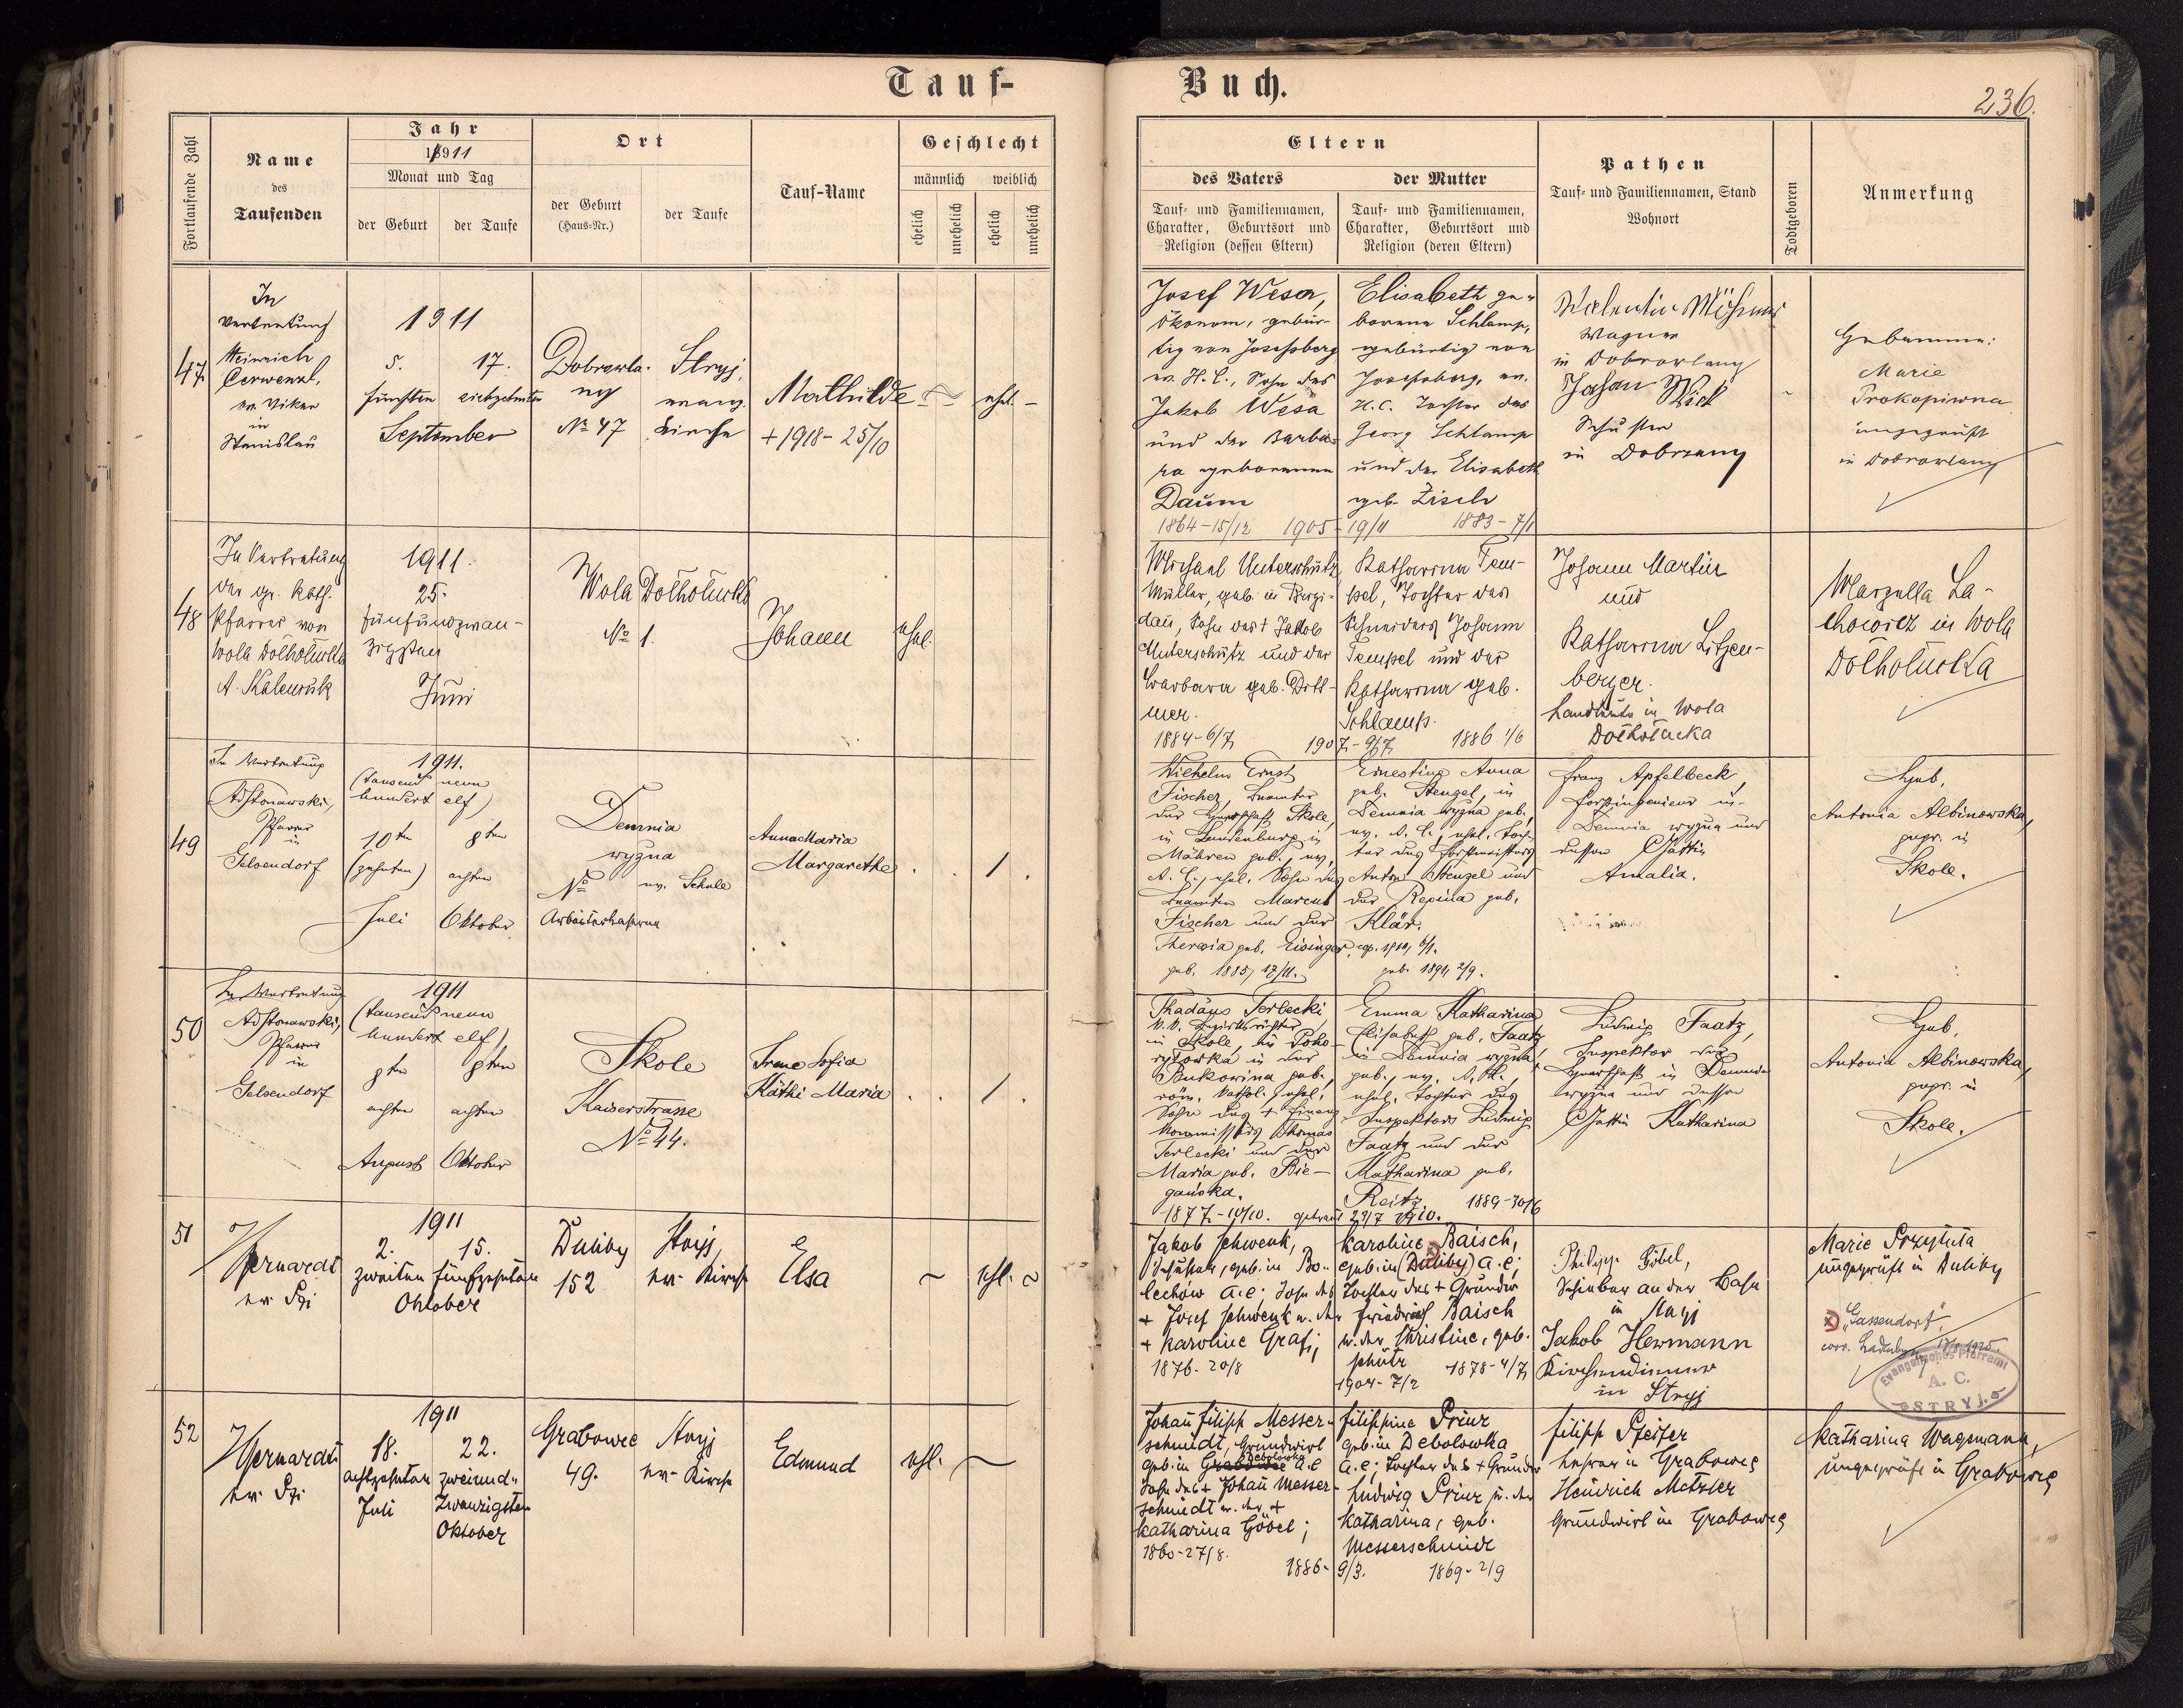 Tauf-
Buch.
236.
Fortlaufende Zahl
Name
des
Taufenden
Jahr
1911
Monat und Tag
der Geburt
der Taufe
Ort
der Geburt
(Haus-Nr.)
der Taufe
Tauf-Name
Geschlecht
männlich
weiblich
ehelich
unehelich
ehelich
unehelich
Eltern
des Vaters
Tauf- und Familiennamen,
Charakter, Geburtsort und
Religion (dessen Eltern)
der Mutter
Tauf- und Familiennamen,
Charakter, Geburtsort und
Religion (deren Eltern)
Pathen
Tauf- und Familiennamen, Stand
Wohnort
Todtgeboren
Anmerkung
47
In
Vertretung
Heinrich
Cerwenzl,
ev. Vikar
in
Stanislau
1911
5. 17.
fünften siebzehnten
September
Dobrowla-
ny
No 47
Stryj,
evang.
Kirche
Mathilde
+ 1918 - 25/10
ehel. -
Josef Wesa,
Ökonom, gebür-
tig von Josefsberg
ev. H. C., Sohn des
Jakob Wesa
und der Barba-
ra geborenen
Daum
1864 - 15/12 1905 - 19/11 1883 - 7/1
Elisabeth ge-
borene Schlamp,
gebürtig von
Josefsberg, ev.
H. C. Tochter des
Georg Schlamp
und der Elisabeth
geb. Zisch
Valentin
Wagner
in Dobrowlany
Johan
Schuster
in Dobrzany
Hebamme:
Marie
Prokopiwna
ungeprüft
in Dobrowlany
48
In Vertretung
der gr. kath.
Pfarrer von
Wola Dołhołucka
A.
1911.
25.
fünfundzwan-
zigsten
Juni
Wola Dołhołucka
No 1.
Johann
ehel.
Michael Unterschütz
Müller, geb. in Brigi-
dau, Sohn des + Jakob
Unterschütz und der
Barbara geb. Ditt-
mer.
1884 - 6/7 1907 - 9/7 1886 1/6
Katharina Tem-
pel, Tochter des
Schneiders Johann
Tempel und der
Katharina geb.
Schlamp.
Johann Martin
und
Katharina Litzen-
berger.
Landleute in Wola
Dołhołucka
Marzella La-
chowicz in Wola
Dołhołucka
49
In Vertretung
Pfarrer
in
Gelsendorf
1911.
(tausend neun
hundert elf)
10ten 8ten
(zehnten) achten
Juli Oktober
Demnia
wyzna
No ev. Schule
Arbeiterkaserne
Anna Maria
Margarethe
1
Wilhelm Ernst
Fischer, Beamter
der Herrschaft Skole,
in Lundenburg in
Mähren geb., ev.
A. C., ehel. Sohn des
Beamten Marcus
Fischer und der
Theresia geb. Eisinger,
geb. 1885, 17/11.
Ernestine Anna
geb. Stengel, in
Demnia wyzna geb.,
ev. A. C., ehel. Toch-
ter des Forstmeisters
Anton Stengel und
der Regina geb.
Klär.
geb. 1891, 2/9.
Franz Apfelbeck,
Forstingenieur in
Demnia wyzna und
dessen Gattin
Amalia.
Heb.
Antonia Albinowska,
gepr. in
Skole.
50
In Vertretung
Pfarrer
in
Gelsendorf
1911
(tausend neun
hundert elf)
8ten 8ten
achten achten
August Oktober
Skole
Kaiserstrasse
No 44.
Irene Sofia
Käthi Maria
1
Thadäus Terlecki
k. k. Bezirksrichter
in Skole,
in der
Bukowina geb.,
röm. kathol., ehel.
Sohn des + Finanz
Kommissärs Thomas
Terlecki und der
Maria geb. Bie-
gańska.
1877 - 10/10. getraut 23/7 1910.
Emma Katharina
Elisabeth geb. Faatz
in Demnia wyzna
geb., ev.
ehel. Tochter des
Inspektors Ludwig
Faatz und der
Katharina geb.
Reitz. 1889 - 30/6
Ludwig Faatz,
Inspektor der
Herrschaft in Demnia
wyzna und dessen
Gattin Katharina
Heb.
Antonia Albinowska,
gepr. in
Skole.
51
ev.
1911
2. 15.
zweiten fünfzehnten
Oktober
Duliby
152
Stryj,
ev. Kirche
Elsa
ehl.
Jakob Schwenk,
Schuster, geb. in Bo-
lechow A. C; Sohn des
+ Josef Schwenk u. der
+ Karoline Graf;
1876 - 20/8
Karoline Baisch,
geb. in (Duliby) A. C;
Tochter des + Grundw
Friedrich Baisch
u. der Christine, geb.
Schütz 1878 - 4/7
1904 - 7/2
Philipp Göbel,
Schieber an der Bahn
in Stryj
Jakob Hermann
Kirchendiener
in Stryj
Marie Przytuła
ungeprüft in Duliby
"Gassendorf",
Evangelisches Pfarramt
A. C.
STRYJ
52
ev.
1911
18. 22.
achtzehnten zweiund-
Juli zwanzigsten
Oktober
Grabowce
49.
Stryj
ev. Kirche
Edmund
ehl.
Johan Filipp Messer-
schmidt, Grundwirt
Debolowka
geb. in Grabowce A. C
Sohn des + Johan Messer-
schmidt u. der +
Katharina Göbel;
1860 - 27/8.
1886 - 9/3. 1869 - 2/9
Filippine Prinz
geb. in Debolowka
A. C; Tochter des + Grundw
Ludwig Prinz u. der
Katharina, geb.
Messerschmidt
Filipp Pfeifer
Lehrer in Grabowce
Heinrich Metzler
Grundwirt in Grabowce
Katharina Wagmann,
ungeprüft in Grabowce